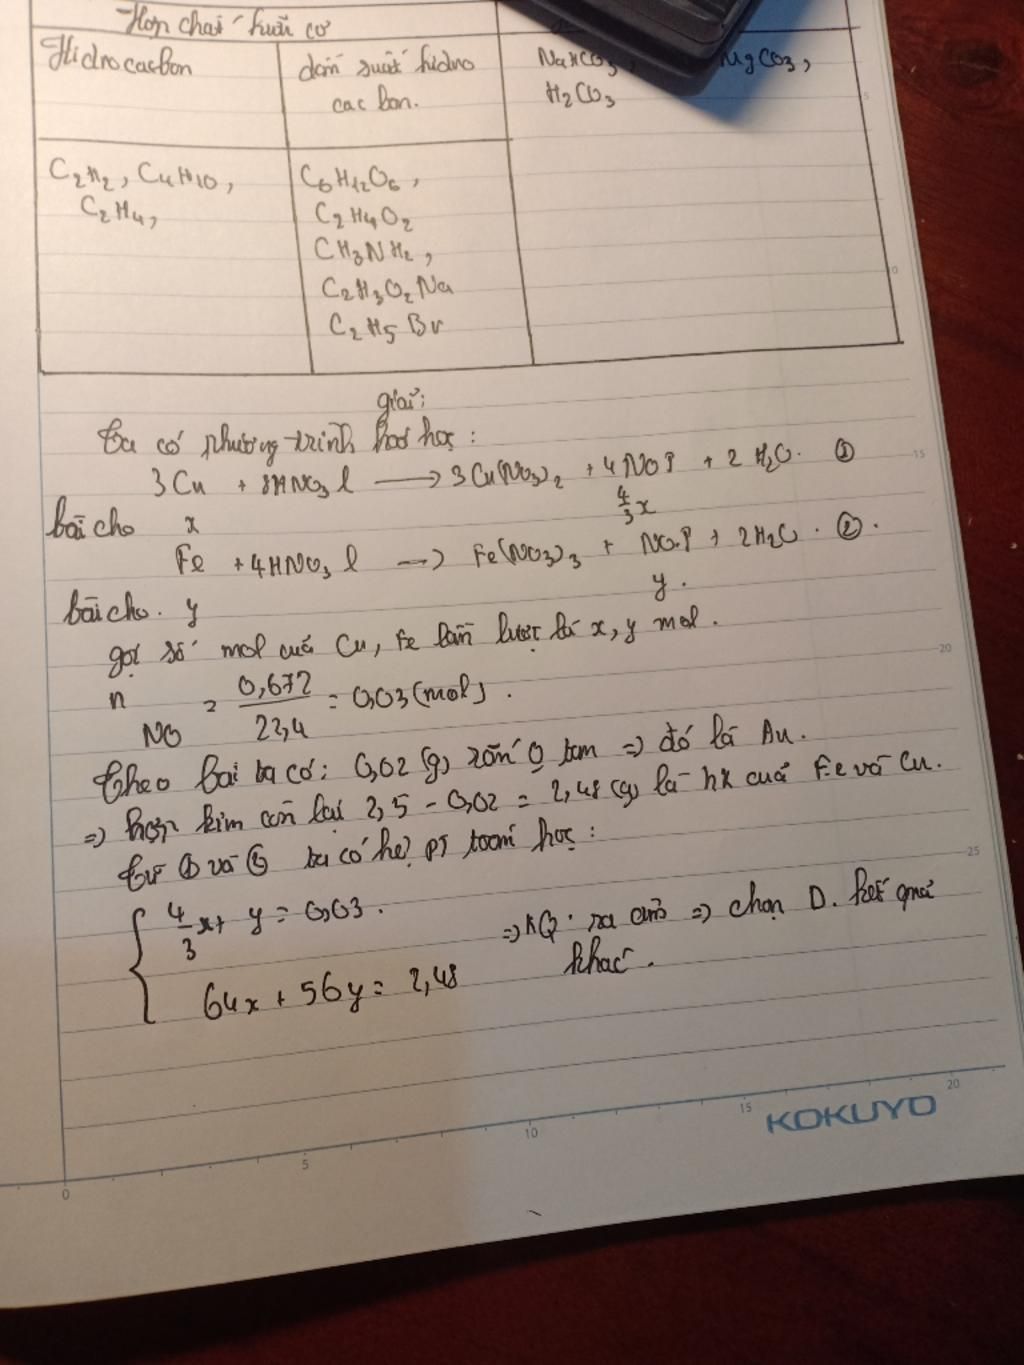 Hợp chất hữu cơ
Hidrocacbon
dẫn xuất hidro
cac bon.
NaHCO3, MgCO3,
H2CO3
C2H2, C4H10,
C2H4,
C6H12O6,
C2H4O2
CH3NH2,
C2H3O2Na
C2H5Br
giải:
Ta có phương trình hoá học:
3Cu + 8HNO3 l → 3Cu(NO3)2 + 4NO↑ + 2H2O. ①
bài cho x 4/3x
Fe + 4HNO3 l → Fe(NO3)3 + NO↑ + 2H2O. ②.
bài cho. y y.
gọi số mol của Cu, Fe lần lượt là x, y mol.
n NO = 0,672/22,4 = 0,03 (mol).
Theo bài ta có: 0,02 (g) rắn ko tan ⇒ đó là Au.
⇒ hợp kim còn lại 2,5 - 0,02 = 2,48 (g) là hk của Fe và Cu.
từ ① và ② ta có hệ pt toán học:
{ 4/3x + y = 0,03.
64x + 56y = 2,48
⇒ KQ: ra âm ⇒ chọn D. kết quả
khác.
5
0
15
20
25
0 5 10 15 20
KOKUYO